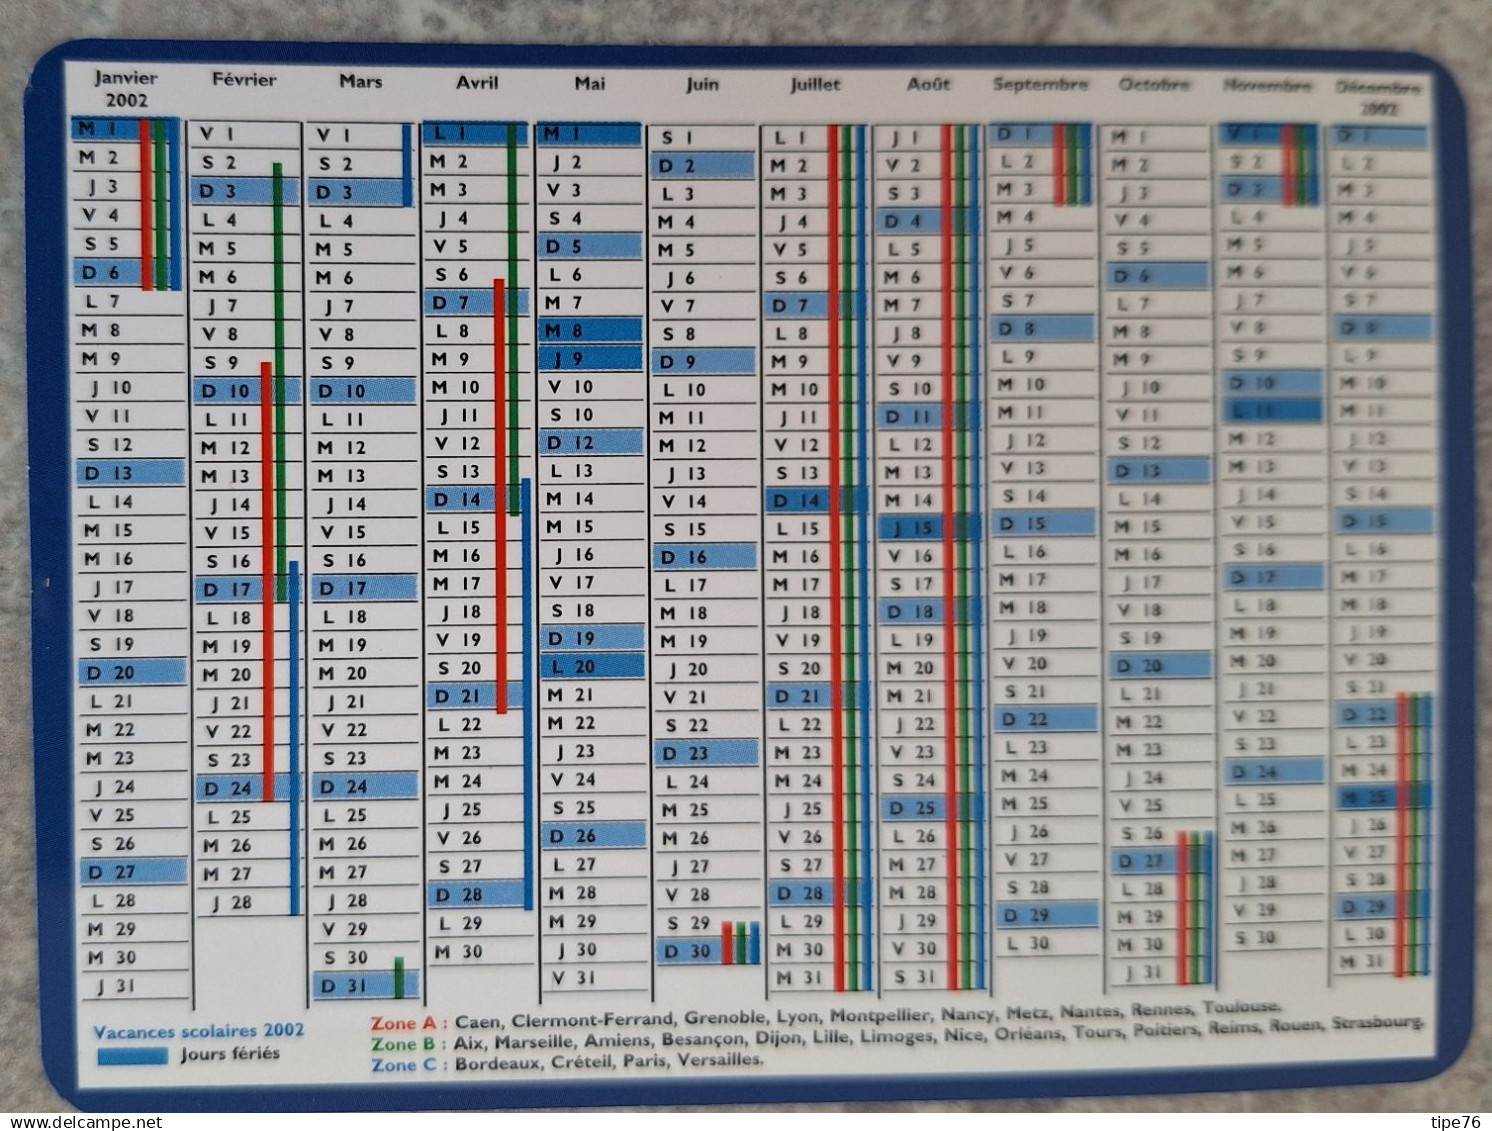 Janvier Février Mars Avril Mai Juin Juillet Août Septembre Octobre Novembre Décembre
2002 2002
M 1 V 1 V 1 L 1 M 1 S 1 L 1 J 1 D 1 M 1 V 1 D 1
M 2 S 2 S 2 M 2 J 2 D 2 M 2 V 2 L 2 M 2 S 2 L 2
J 3 D 3 D 3 M 3 V 3 L 3 M 3 S 3 M 3 J 3 D 3 M 3
V 4 L 4 L 4 J 4 S 4 M 4 J 4 D 4 M 4 V 4 L 4 M 4
S 5 M 5 M 5 V 5 D 5 M 5 V 5 L 5 J 5 S 5 M 5 J 5
D 6 M 6 M 6 S 6 L 6 J 6 S 6 M 6 V 6 D 6 M 6 V 6
L 7 J 7 J 7 D 7 M 7 V 7 D 7 M 7 S 7 L 7 J 7 S 7
M 8 V 8 V 8 L 8 M 8 S 8 L 8 J 8 D 8 M 8 V 8 D 8
M 9 S 9 S 9 M 9 J 9 D 9 M 9 V 9 L 9 M 9 S 9 L 9
J 10 D 10 D 10 M 10 V 10 L 10 M 10 S 10 M 10 J 10 D 10 M 10
V 11 L 11 L 11 J 11 S 10 M 11 J 11 D 11 M 11 V 11 L 11 M 11
S 12 M 12 M 12 V 12 D 12 M 12 V 12 L 12 J 12 S 12 M 12 J 12
D 13 M 13 M 13 S 13 L 13 J 13 S 13 M 13 V 13 D 13 M 13 V 13
L 14 J 14 J 14 D 14 M 14 V 14 D 14 M 14 S 14 L 14 J 14 S 14
M 15 V 15 V 15 L 15 M 15 S 15 L 15 J 15 D 15 M 15 V 15 D 15
M 16 S 16 S 16 M 16 J 16 D 16 M 16 V 16 L 16 M 16 S 16 L 16
J 17 D 17 D 17 M 17 V 17 L 17 M 17 S 17 M 17 J 17 D 17 M 17
V 18 L 18 L 18 J 18 S 18 M 18 J 18 D 18 M 18 V 18 L 18 M 18
S 19 M 19 M 19 V 19 D 19 M 19 V 19 L 19 J 19 S 19 M 19 J 19
D 20 M 20 M 20 S 20 L 20 J 20 S 20 M 20 V 20 D 20 M 20 V 20
L 21 J 21 J 21 D 21 M 21 V 21 D 21 M 21 S 21 L 21 J 21 S 21
M 22 V 22 V 22 L 22 M 22 S 22 L 22 J 22 D 22 M 22 V 22 D 22
M 23 S 23 S 23 M 23 J 23 D 23 M 23 V 23 L 23 M 23 S 23 L 23
J 24 D 24 D 24 M 24 V 24 L 24 M 24 S 24 M 24 J 24 D 24 M 24
V 25 L 25 L 25 J 25 S 25 M 25 J 25 D 25 M 25 V 25 L 25 M 25
S 26 M 26 M 26 V 26 D 26 M 26 V 26 L 26 J 26 S 26 M 26 J 26
D 27 M 27 M 27 S 27 L 27 J 27 S 27 M 27 V 27 D 27 M 27 V 27
L 28 J 28 J 28 D 28 M 28 V 28 D 28 M 28 S 28 L 28 J 28 S 28
M 29 V 29 L 29 M 29 S 29 L 29 J 29 D 29 M 29 V 29 D 29
M 30 S 30 M 30 J 30 D 30 M 30 V 30 L 30 M 30 S 30 L 30
J 31 D 31 V 31 M 31 S 31 J 31 M 31
Vacances scolaires 2002
Jours fériés
Zone A : Caen, Clermont-Ferrand, Grenoble, Lyon, Montpellier, Nancy, Metz, Nantes, Rennes, Toulouse.
Zone B : Aix, Marseille, Amiens, Besançon, Dijon, Lille, Limoges, Nice, Orléans, Tours, Poitiers, Reims, Rouen, Strasbourg.
Zone C : Bordeaux, Créteil, Paris, Versailles.
www.delcampe.net
tipe76